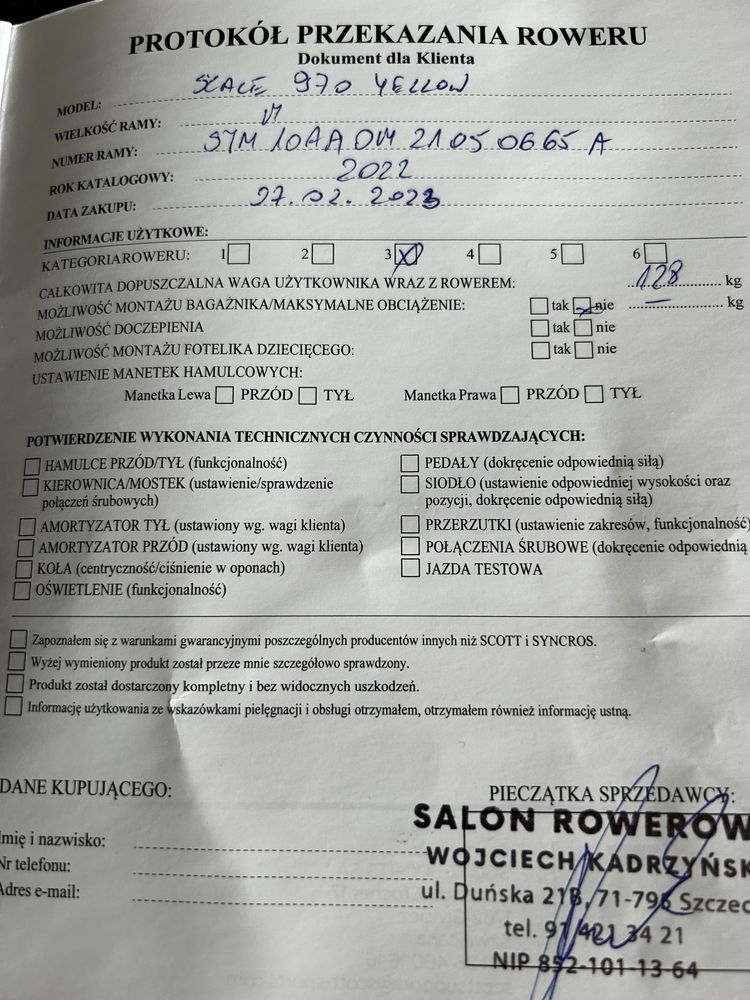 PROTOKÓŁ PRZEKAZANIA ROWERU
Dokument dla Klienta
MODEL: SCALE 970 YELLOW
WIELKOŚĆ RAMY: M
NUMER RAMY: STM10AA0M21050665A
ROK KATALOGOWY: 2022
DATA ZAKUPU: 27.02.2023
INFORMACJE UŻYTKOWE:
KATEGORIA ROWERU: 1 2 3 X 4 5 6
CAŁKOWITA DOPUSZCZALNA WAGA UŻYTKOWNIKA WRAZ Z ROWEREM: 128 kg
MOŻLIWOŚĆ MONTAŻU BAGAŻNIKA/MAKSYMALNE OBCIĄŻENIE: tak nie — kg
MOŻLIWOŚĆ DOCZEPIENIA tak nie
MOŻLIWOŚĆ MONTAŻU FOTELIKA DZIECIĘCEGO: tak nie
USTAWIENIE MANETEK HAMULCOWYCH:
Manetka Lewa PRZÓD TYŁ Manetka Prawa PRZÓD TYŁ
POTWIERDZENIE WYKONANIA TECHNICZNYCH CZYNNOŚCI SPRAWDZAJĄCYCH:
HAMULCE PRZÓD/TYŁ (funkcjonalność)
KIEROWNICA/MOSTEK (ustawienie/sprawdzenie
połączeń śrubowych)
AMORTYZATOR TYŁ (ustawiony wg. wagi klienta)
AMORTYZATOR PRZÓD (ustawiony wg. wagi klienta)
KOŁA (centryczność/ciśnienie w oponach)
OŚWIETLENIE (funkcjonalność)
PEDAŁY (dokręcenie odpowiednią siłą)
SIODŁO (ustawienie odpowiedniej wysokości oraz
pozycji, dokręcenie odpowiednią siłą)
PRZERZUTKI (ustawienie zakresów, funkcjonalność)
POŁĄCZENIA ŚRUBOWE (dokręcenie odpowiednią
JAZDA TESTOWA
Zapoznałem się z warunkami gwarancyjnymi poszczególnych producentów innych niż SCOTT i SYNCROS.
Wyżej wymieniony produkt został przeze mnie szczegółowo sprawdzony.
Produkt został dostarczony kompletny i bez widocznych uszkodzeń.
Informację użytkowania ze wskazówkami pielęgnacji i obsługi otrzymałem, otrzymałem również informację ustną.
DANE KUPUJĄCEGO:
Imię i nazwisko:
Nr telefonu:
Adres e-mail:
PIECZĄTKA SPRZEDAWCY:
SALON ROWEROW
WOJCIECH KADRZYŃSK
ul. Duńska 21B, 71-796 Szczec
tel. 91 421 34 21
NIP 852-101-13-64